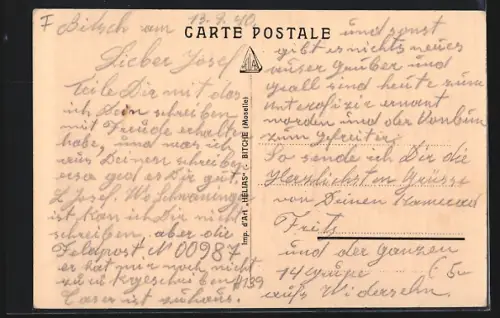 F Bitsch am 13.8.40.
CARTE POSTALE
Lieber Josef
teile Dir mit das
ich Dein schreiben
mit Freude erhalten
habe, und was ich
aus Deinem schreiben
ersa get es Dir gut.
L Josef. Wo Schwaninger
ist kan ich Dir nicht
schreiben. aber die
Feldpost N 00987
er hat mir noch nicht
zurükgeschrieben
Caser ist zuhaus.
Imp. d'Art "HÉLIAS" - BITCHE (Moselle)
und sonst
gibt es nichts neues
unser Gruber und
Gsall sind heute zum
Unterofizir ernant
worden und der
zum Gfreitir
So sende ich Dir die
Herzlichsten Grüsse
von Deinen Kamerad
Frits
und der Ganzen
14 Grupe
aufs Widersehn.
4139